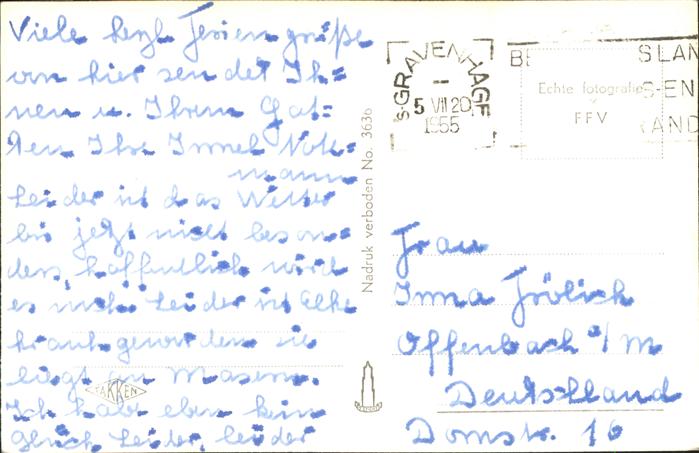 Viele herzl. Feriengrüße
von hier sendet Ih=
nen u. Ihrem Gat=
ten Ihre Irmel Volk=
mann
Leider ist das Wetter
bis jetzt nicht beson=
ders, hoffentlich wird
es noch. Leider ist Elke
krank geworden sie
liegt an Masern.
Ich hab eben kein
Glück. Leider, leider
TAKKEN
Nadruk verboden No. 3636
's-GRAVENHAGE
5 VII 20
1955
SLAN
S-EN
AND
Echte fotografie
FFV
Frau
Irma Frölich
Offenbach a/M
Deutschland
Domstr. 16